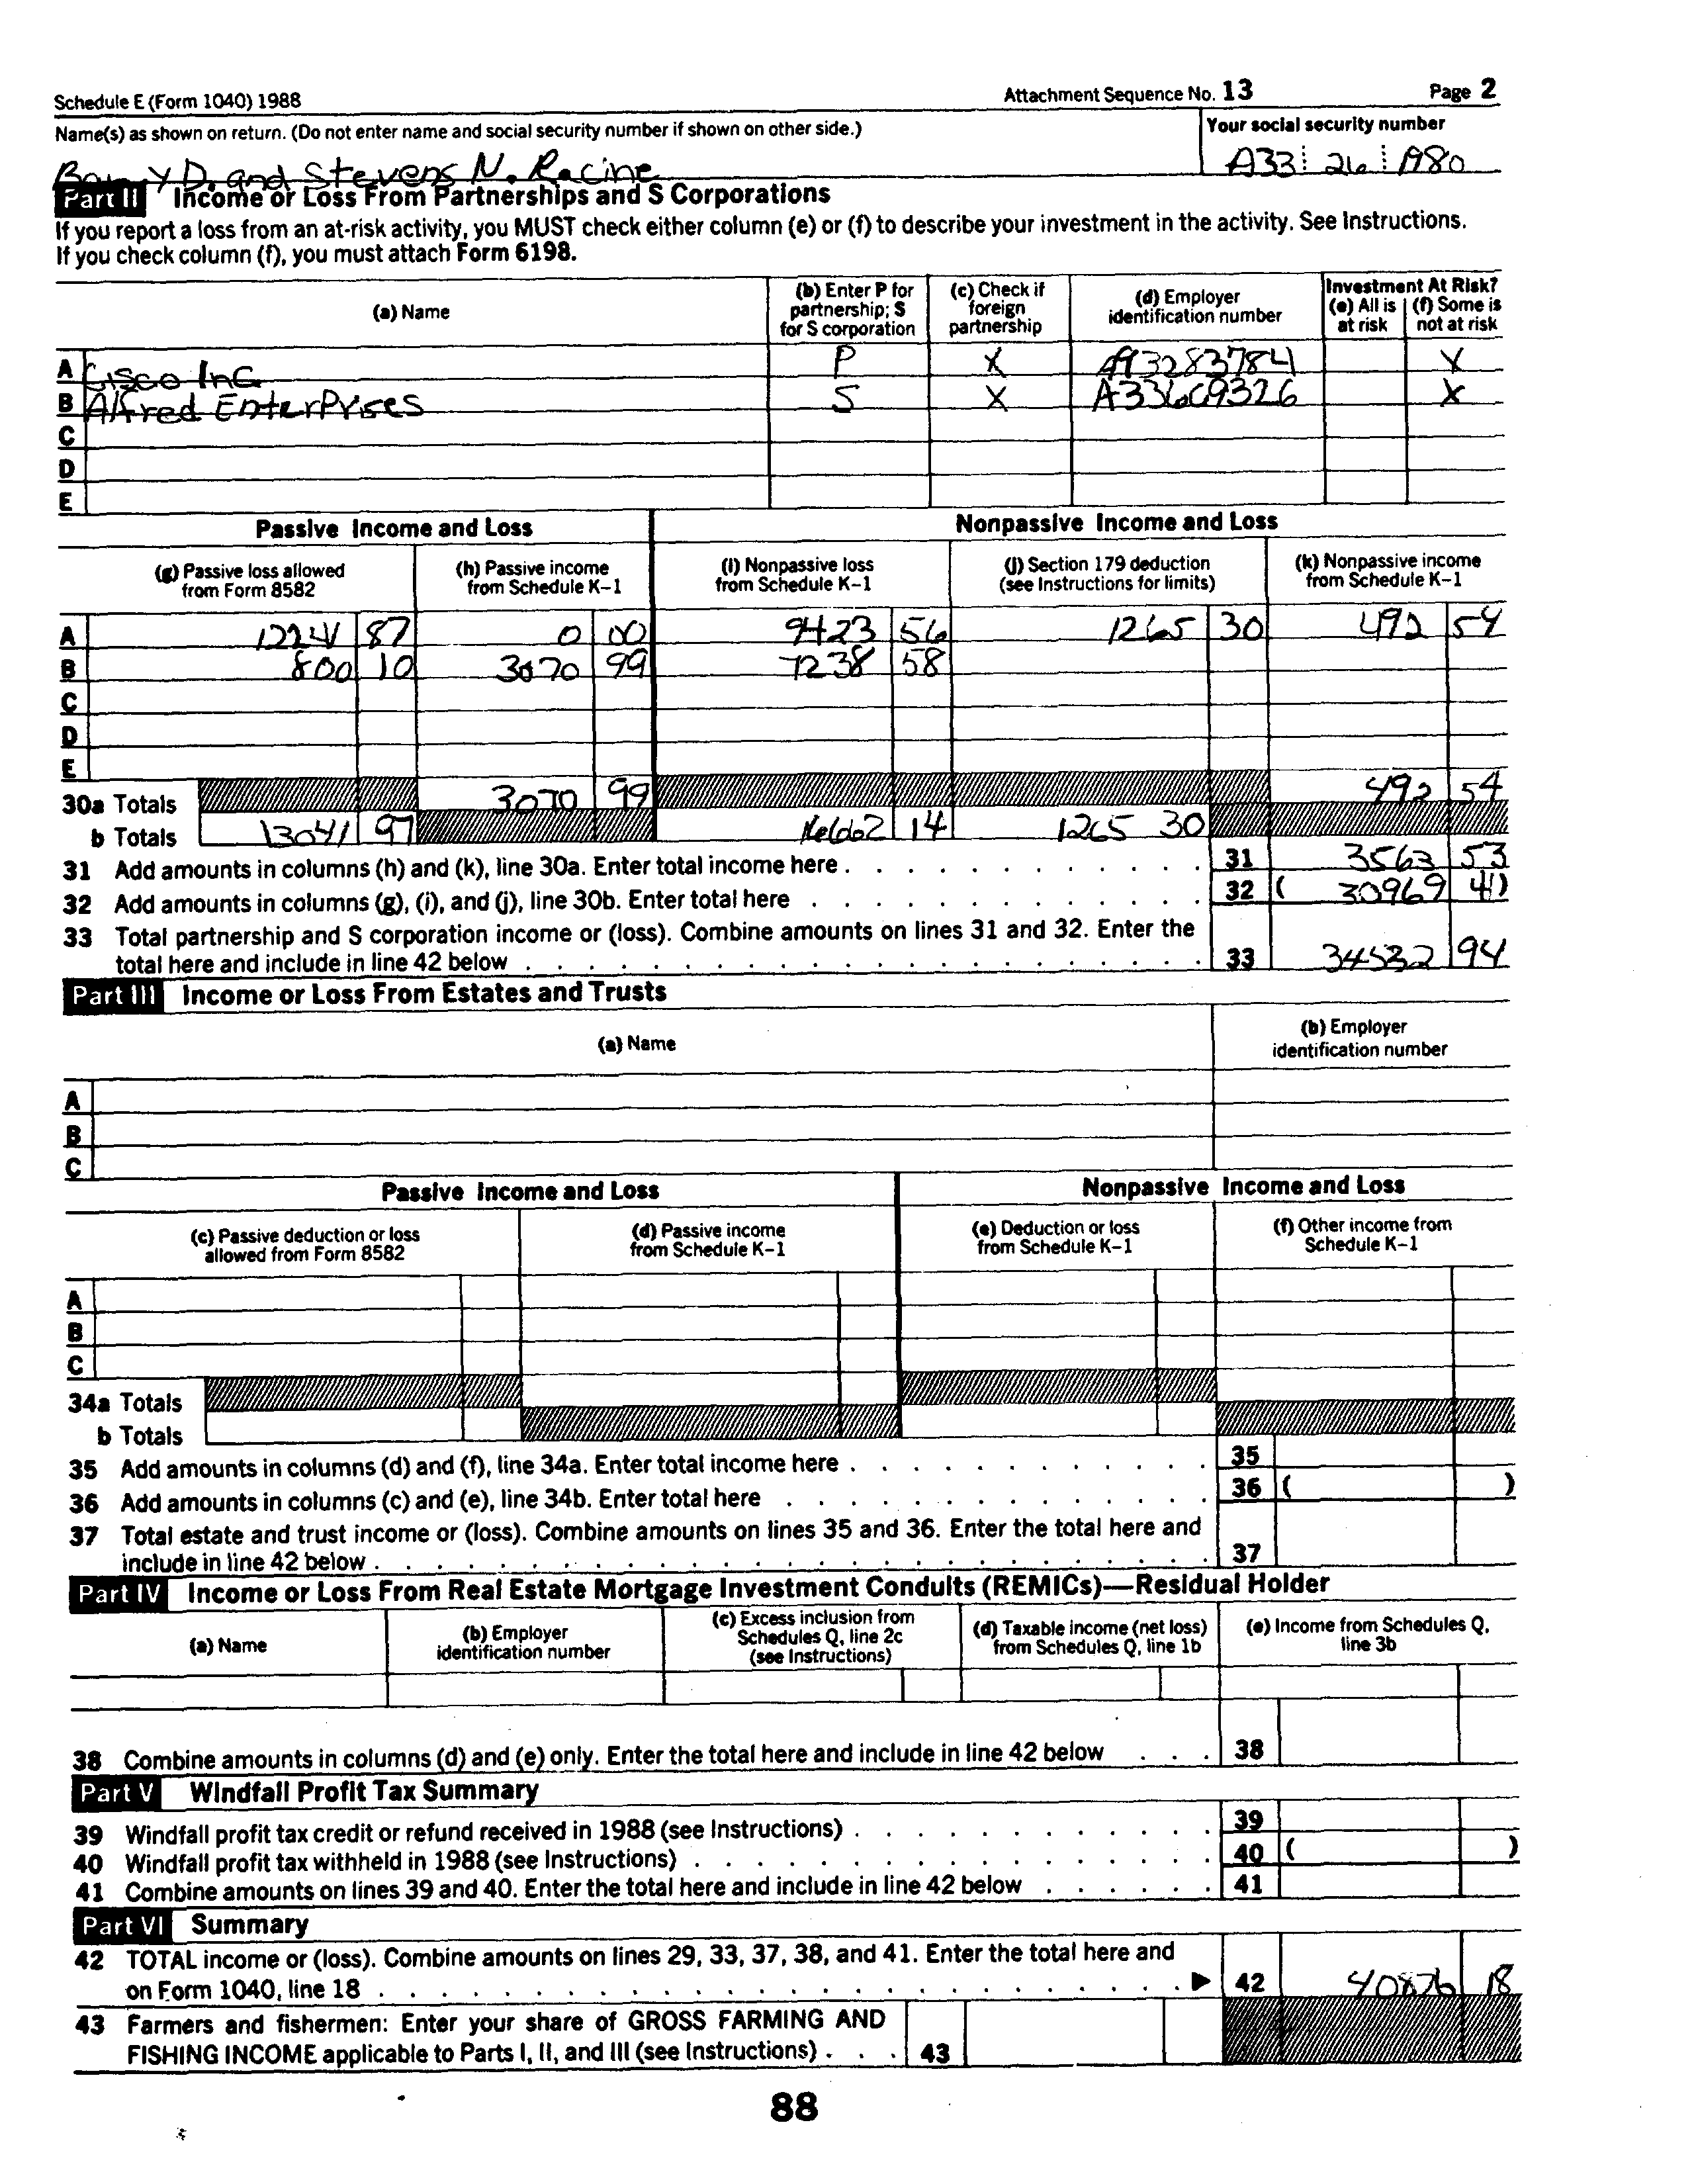 Schedule E (Form 1040) 1988 Attachment Sequence No. 13 Page 2
Name(s) as shown on return. (Do not enter name and social security number if shown on other side.) Your social security number
Y D. and Stevens N. Racine A33 26 1980
Part II Income or Loss From Partnerships and S Corporations
If you report a loss from an at-risk activity, you MUST check either column (e) or (f) to describe your investment in the activity. See Instructions.
If you check column (f), you must attach Form 6198.
(a) Name (b) Enter P for partnership; S for S corporation (c) Check if foreign partnership (d) Employer identification number Investment At Risk? (e) All is at risk (f) Some is not at risk
A Cisco Inc P X A93283784 X
B Alfred EnterPrises S X A33669326 X
C
D
E
Passive Income and Loss Nonpassive Income and Loss
(g) Passive loss allowed from Form 8582 (h) Passive income from Schedule K-1 (i) Nonpassive loss from Schedule K-1 (j) Section 179 deduction (see Instructions for limits) (k) Nonpassive income from Schedule K-1
A 87 0 00 9423 56 1265 30 492 54
B 800 10 3070 99 7238 58
C
D
E
30a Totals 3070 99 492 54
b Totals 13041 97 16662 14 1265 30
31 Add amounts in columns (h) and (k), line 30a. Enter total income here 31 3563 53
32 Add amounts in columns (g), (i), and (j), line 30b. Enter total here 32 ( 30969 41)
33 Total partnership and S corporation income or (loss). Combine amounts on lines 31 and 32. Enter the
total here and include in line 42 below 33 34532 94
Part III Income or Loss From Estates and Trusts
(a) Name (b) Employer identification number
A
B
C
Passive Income and Loss Nonpassive Income and Loss
(c) Passive deduction or loss allowed from Form 8582 (d) Passive income from Schedule K-1 (e) Deduction or loss from Schedule K-1 (f) Other income from Schedule K-1
A
B
C
34a Totals
b Totals
35 Add amounts in columns (d) and (f), line 34a. Enter total income here 35
36 Add amounts in columns (c) and (e), line 34b. Enter total here 36 ( )
37 Total estate and trust income or (loss). Combine amounts on lines 35 and 36. Enter the total here and
include in line 42 below 37
Part IV Income or Loss From Real Estate Mortgage Investment Conduits (REMICs)—Residual Holder
(a) Name (b) Employer identification number (c) Excess inclusion from Schedules Q, line 2c (see Instructions) (d) Taxable income (net loss) from Schedules Q, line 1b (e) Income from Schedules Q, line 3b
38 Combine amounts in columns (d) and (e) only. Enter the total here and include in line 42 below 38
Part V Windfall Profit Tax Summary
39 Windfall profit tax credit or refund received in 1988 (see Instructions) 39
40 Windfall profit tax withheld in 1988 (see Instructions) 40 ( )
41 Combine amounts on lines 39 and 40. Enter the total here and include in line 42 below 41
Part VI Summary
42 TOTAL income or (loss). Combine amounts on lines 29, 33, 37, 38, and 41. Enter the total here and
on Form 1040, line 18 ▶ 42 40876 18
43 Farmers and fishermen: Enter your share of GROSS FARMING AND
FISHING INCOME applicable to Parts I, II, and III (see Instructions) 43
88